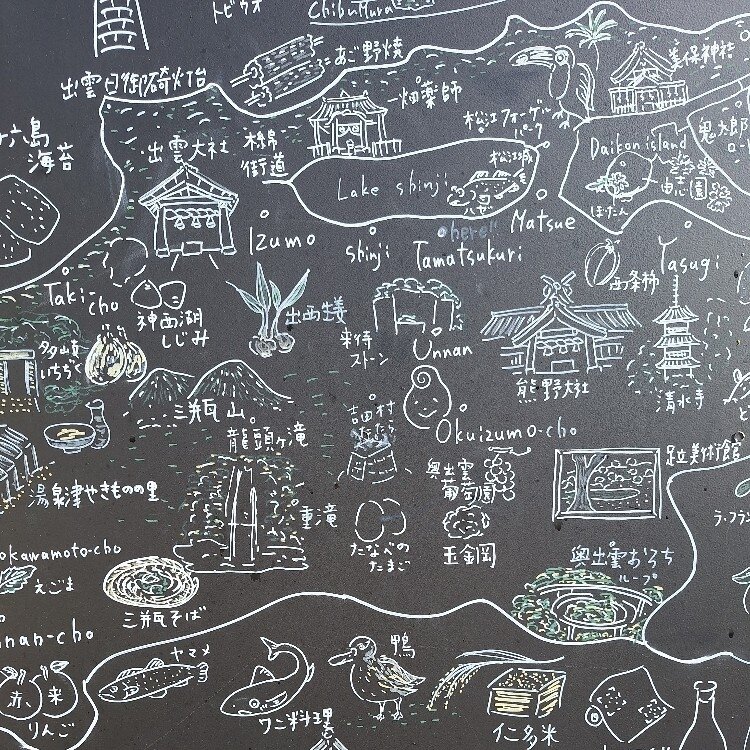 トビウオ
Chibumura
あご野焼
美保神社
出雲日御碕灯台
畑薬師
松江フォーゲル
パーク
十六島
海苔
出雲大社
木綿
街道
Lake shinji
松江城
Daikon island
鬼太郎
ロード
ぼたん
由志園
Izumo
shinji
here!!
Tamatsukuri
Matsue
Taki-
cho
神西湖
しじみ
出西生姜
来待
ストーン
Unnan
西条柿
Yasugi
多岐
いちぢく
熊野大社
清水寺
三瓶山
吉田村
たたら
Okuizumo-cho
龍頭ヶ滝
八重滝
奥出雲
葡萄園
足立美術館
湯泉津やきものの里
たなべの
たまご
玉鋼岡
ラ・フラン
okawamoto-cho
えごま
三瓶そば
奥出雲おろち
ループ
nan-cho
ヤマメ
鴨
赤
来
りんご
ワニ料理
仁多米